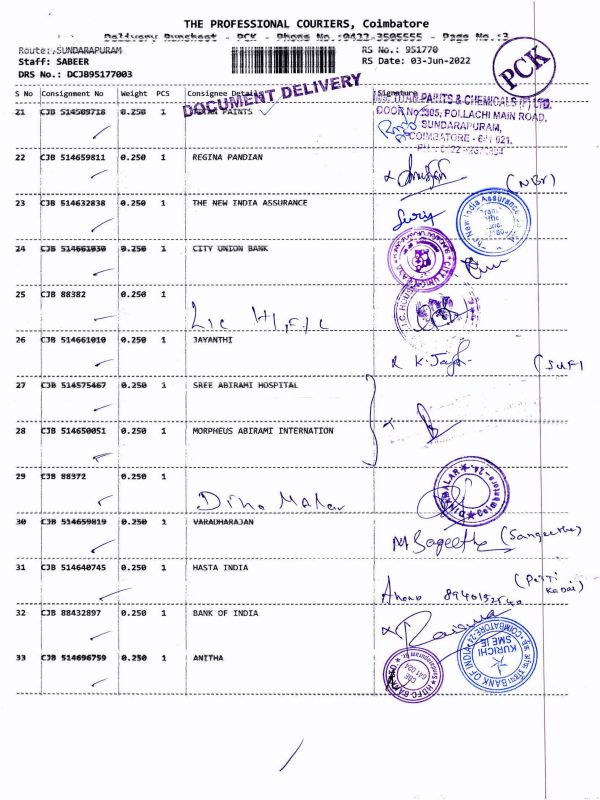 THE PROFESSIONAL COURIERS, Coimbatore
Delivery Runsheet - PCK - Phone No.:0422-3505555 - Page No.:3
Route: SUNDARAPURAM
RS No.: 951770
Staff: SABEER
RS Date: 03-Jun-2022
DRS No.: DCJB95177003
PCK
DOCUMENT DELIVERY
S No Consignment No Weight PCS Consignee Details Signature
21 CJB 514509718 0.250 1 PAINTS
PAINTS & CHEMICALS (P) LTD.
DOOR No:1305, POLLACHI MAIN ROAD,
SUNDARAPURAM,
COIMBATORE - 641 021.
22 CJB 514659811 0.250 1 REGINA PANDIAN
23 CJB 514632838 0.250 1 THE NEW INDIA ASSURANCE
24 CJB 514661030 0.250 1 CITY UNION BANK
25 CJB 88382 0.250 1
Lic H.F.L
26 CJB 661010 0.250 1 JAYANTHI
27 CJB 514575467 0.250 1 SREE ABIRAMI HOSPITAL
28 CJB 514650051 0.250 1 MORPHEUS ABIRAMI INTERNATION
29 CJB 88372 0.250 1
Dina Malar
30 CJB 514659819 0.250 1 VARADHARAJAN
(Sangeetha)
31 CJB 514640745 0.250 1 HASTA INDIA
32 CJB 88432897 0.250 1 BANK OF INDIA
KURICHI
SME IE
BANK OF INDIA
COIMBATORE-24
33 CJB 514696759 0.250 1 ANITHA
HDFC BANK